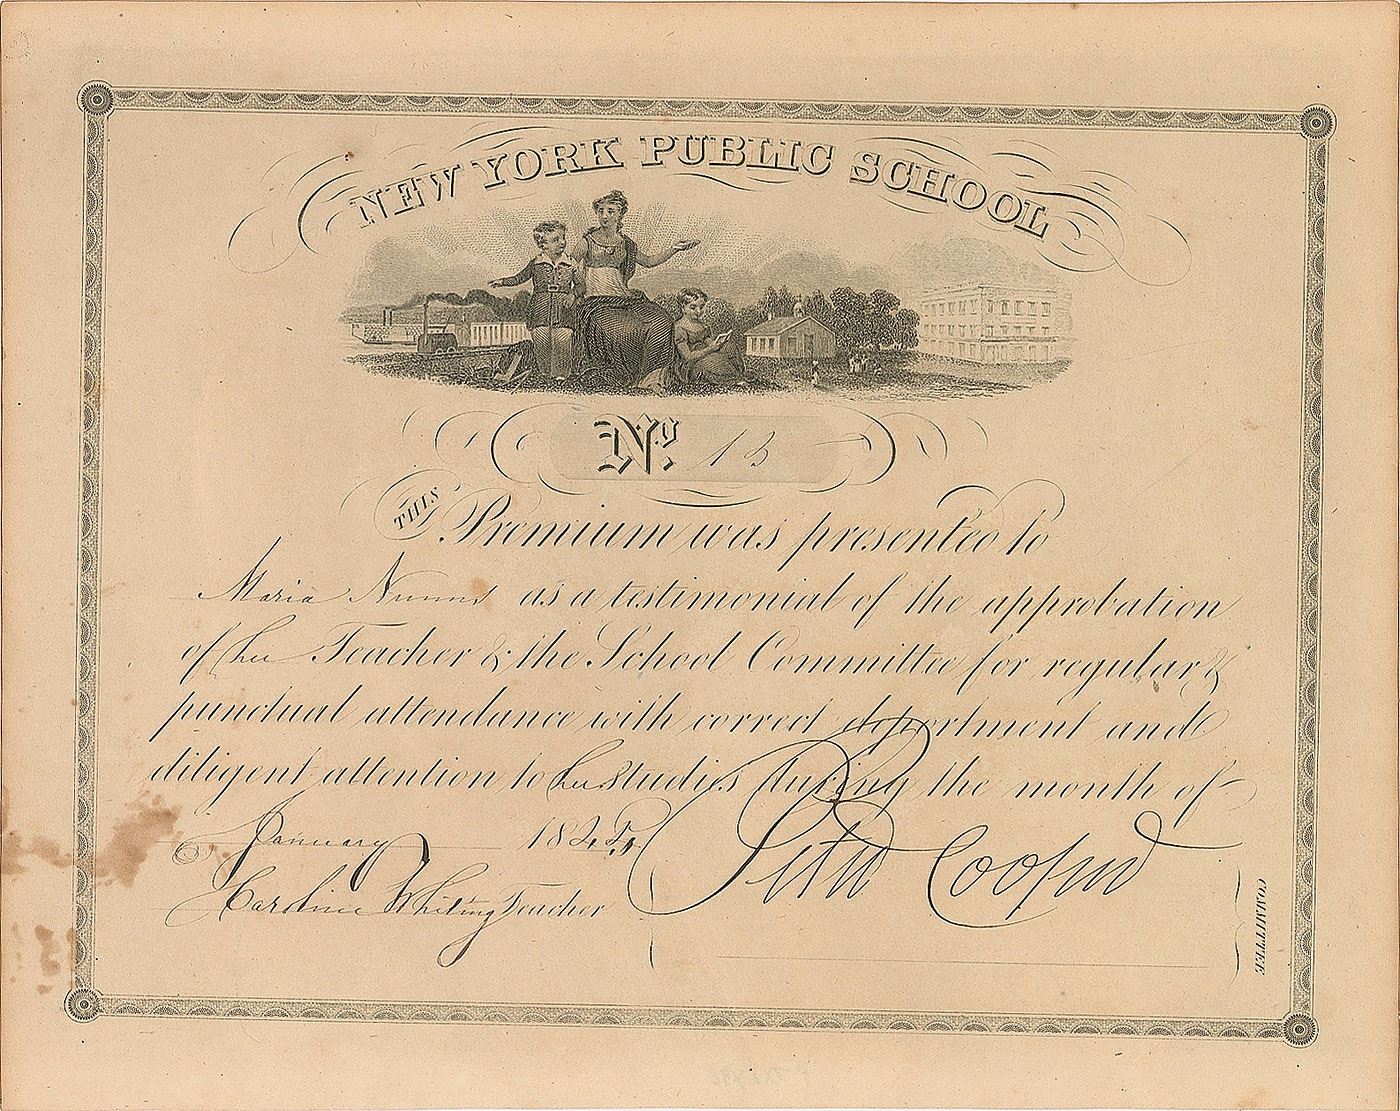 NEW YORK PUBLIC SCHOOL
No. 15
THIS Premium was presented to
Maria as a testimonial of the approbation
of her Teacher & the School Committee for regular &
punctual attendance with correct deportment and
diligent attention to her Studies during the month of
January 184
Peter Cooper
Caroline Whiting Teacher
COMMITTEE